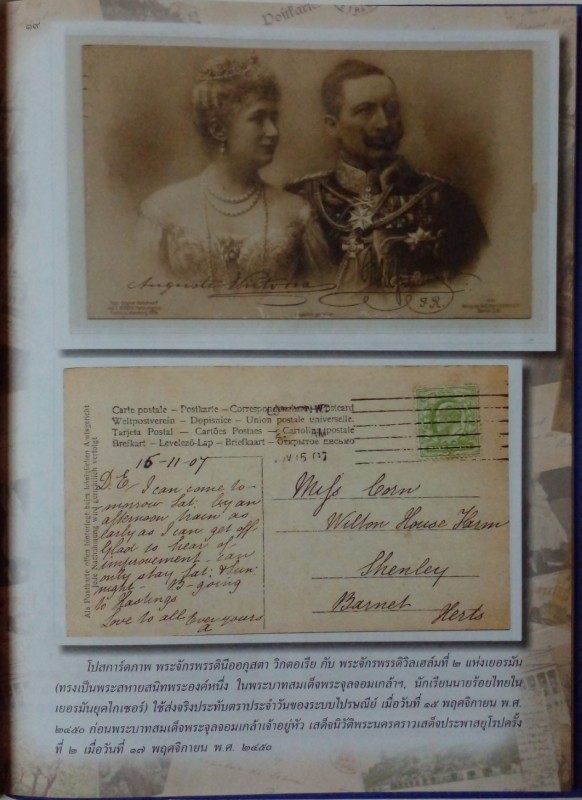 ๑๙
Auguste Victoria
Carte postale – Postkarte – Correspondenzkarte – Postcard
Weltpostverein – Dopisnice – Union postale universelle.
Tarjeta Postal – Cartões Postaes – Cartolina postale
Brefkort – Levelező-Lap – Briefkaart – Открытое письмо
NV 15 07
15-11-07
D. E I can come to-
morrow Sat: by an
afternoon train as
early as I can get off
Glad to hear of
improvement. Can
only stay Sat: & Sun:
night – B- going
to Hastings
Love to all Ever yours
a
Miss Corn
Wilton House Farm
Shenley
Barnet
Herts
โปสการ์ดภาพ พระจักรพรรดินีออกุสตา วิกตอเรีย กับ พระจักรพรรดิวิลเฮล์มที่ ๒ แห่งเยอรมัน
(ทรงเป็นพระสหายสนิทพระองค์หนึ่ง ในพระบาทสมเด็จพระจุลจอมเกล้าฯ, นักเรียนนายร้อยไทยใน
เยอรมันยุคไกเซอร์) ใช้ส่งจริงประทับตราประจำวันของระบบไปรษณีย์ เมื่อวันที่ ๑๕ พฤศจิกายน พ.ศ.
๒๔๕๐ ก่อนพระบาทสมเด็จพระจุลจอมเกล้าเจ้าอยู่หัว เสด็จนิวัติพระนครคราวเสด็จประพาสยุโรปครั้ง
ที่ ๒ เมื่อวันที่ ๑๗ พฤศจิกายน พ.ศ. ๒๔๕๐